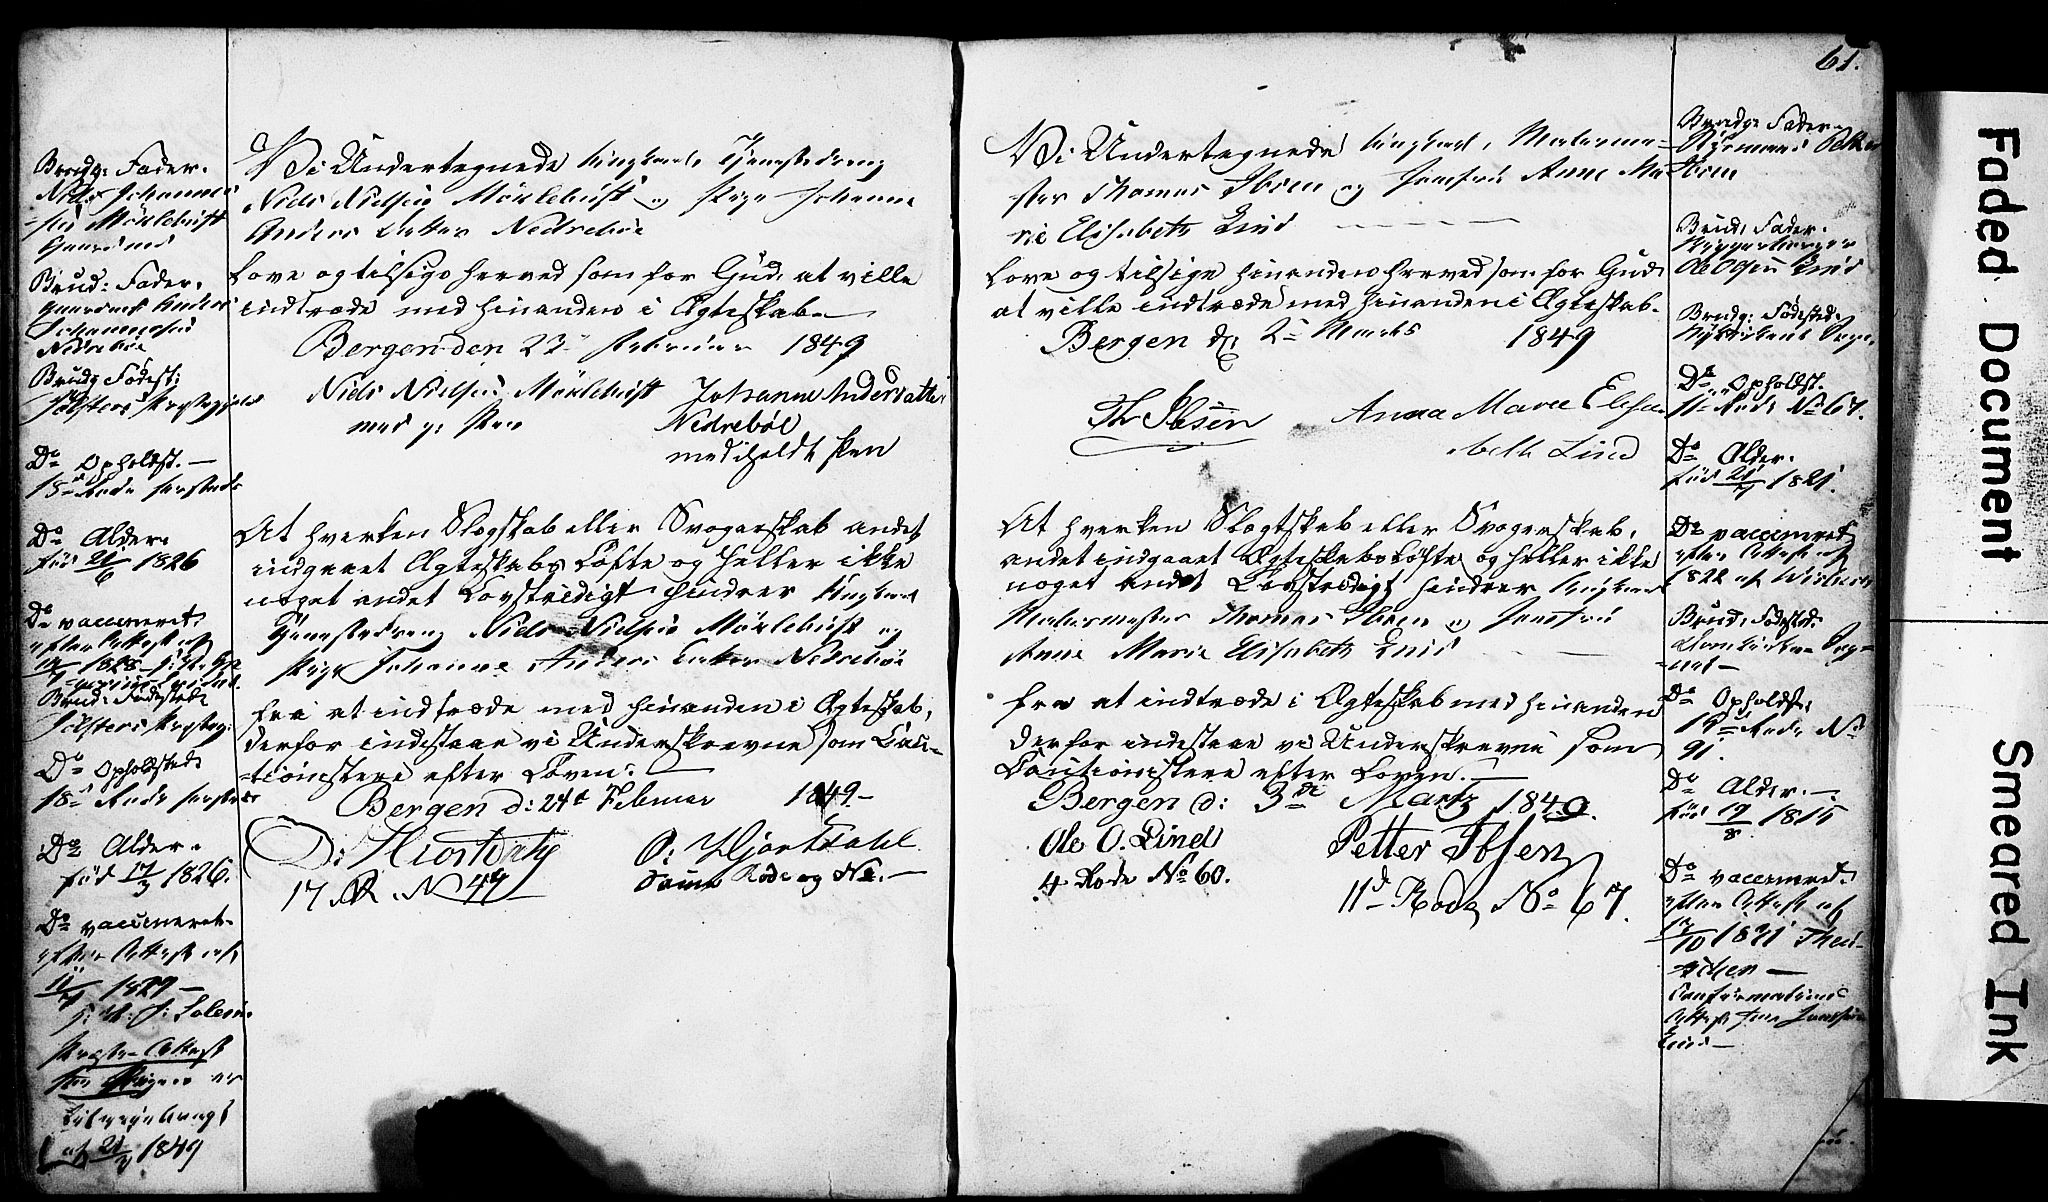 Brudg: Fader.
Niels Johannes
sen Mörlebust
Gaardmd
Brud: Fader.
Gaardmd Anders
Johannesen
Nedrebøe
Brudg Födest:
Jölsters Præstegjeld
Do Opholdst. —
18de Rode
Do Alder.
föd 21/6 1826
Do vaccineret
efter Attest af
1828
Brud: Fødested
Jölsters Præsteg:
Do Opholdsted
18de Rode
Do Alder.
föd 17/3 1826.
Do vaccineret.
efter Attest af
1829 —
Præste-Attest
for Pigen er
tilveiebragt
af 21/2 1849
Vi Undertegnede Ungkarl, Tjenestedreng
Niels Nielsen Mörlebust og Pige Johanne
Anders Datter Nedrebøe
Love og tilsige herved som for Gud, at ville
indtræde med hinanden i Ægteskab. —
Bergen den 23 Februar 1849
Niels Nielsen Mörlebust Johanne Andersdatter
med p. Pen Nedrebøe
med iholdt Pen
At hverken Slægskab eller Svogerskab andet
indgaaet Ægteskabs Løfte og heller ikke
noget andet Lovstridigt hindrer Ungkarl
Tjenestedreng Niels Nielsen Mörlebust og
Pige Johanne Anders Datter Nedrebøe
fra at indtræde med hinanden i Ægteskab,
derfor indestaar vi Underskrevne som Cau-
-tionistere efter Loven. —
Bergen d: 24de Februar 1849 —
D: Hiortdahl O: Hjortdahl.
17 R. N 44 Samme Rode og No. —
61.
Vi Undertegnede Ungkarl, Malerme-
ster Thomas Ibsen og Jomfru Anne Ma
rie Elisabeth Lind
Love og tilsige hinanden herved som for Gud
at ville indtræde med hinanden i Ægteskab.
Bergen d. 2 Marts 1849
Th Ibsen Anna Marie Elisa
beth Lind
At hverken Slægtskab eller Svogerskab,
andet indgaaet Ægteskabsløfte og heller ikke
noget andet Lovstridigt hindrer Ungkarl
Malermester Thomas Ibsen og Jomfru
Anne Marie Elisabeth Lind
fra at indtræde i Ægteskab med hinanden
derfor indestaae vi Underskrevne som
Cautionistere efter Loven. —
Bergen d: 3de Martz 1849.
Ole O. Lind Petter Ibsen
4 Rode No 60. 11te Rode No 67.
Brudg: Fader.
Petter
Ibsen
Brud: Fader.
Ole Olsen Lind
Brudg: Fødested
Nykirkens Sogn
Do Opholdst.
11te Rode No 67.
Do Alder.
föd 1821.
Do vaccineret
efter Attest af
1822 af
Brud: Fødested.
Domkirkens Sog-
-net —
Do Opholdst.
19de Rode No
91.
Do Alder. —
föd 17/8 1815
Do vaccineret.
efter Attest af
12/10 1821
Confirmations
Attest for Jomfru
Lind —
Faded Document
Smeared Ink